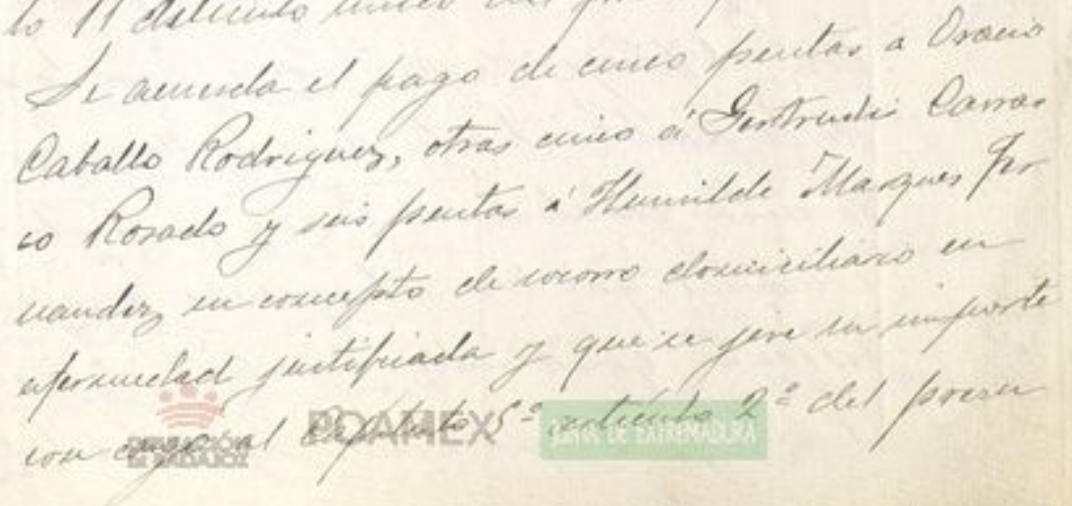 to 11 del presu
Se acuerda el pago de cinco pesetas a Oracio
Caballo Rodriguez, otras cinco á Gertrudis Carras
co Rosado y seis pesetas á Humilde Marques Fer
nandez en concepto de socorro domiciliario en
efermedad justificada y que se jire su importe
con cargo al Capitulo 5º articulo 2º del presu
DIPUTACIÓN
DE BADAJOZ
PDAMEX
JUNTA DE EXTREMADURA